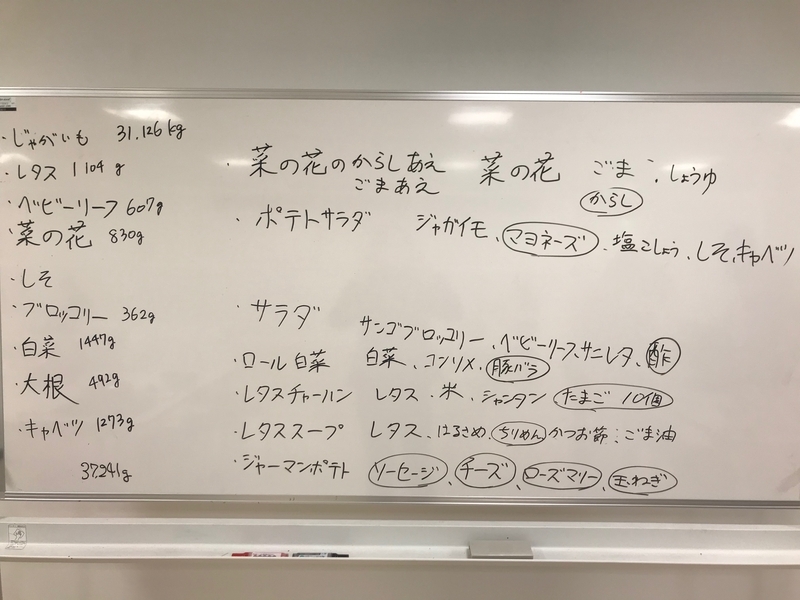 ・じゃがいも 31.126kg
・レタス 1104g
・ベビーリーフ 607g
・菜の花 830g
・しそ
・ブロッコリー 362g
・白菜 1447g
・大根 492g
・キャベツ 1273g
37,241g
・菜の花のからしあえ 菜の花 ごま、しょうゆ
ごまあえ からし
・ポテトサラダ ジャガイモ、マヨネーズ、塩こしょう、しそ、キャベツ
・サラダ
サンゴブロッコリー、ベビーリーフ、サニレタ、酢
・ロール白菜 白菜、コンソメ、豚バラ
・レタスチャーハン レタス・米、シャンタン たまご10個
・レタススープ レタス、はるさめ、ちりめん かつお節、ごま油
・ジャーマンポテト ソーセージ、チーズ、ローズマリー、玉ねぎ